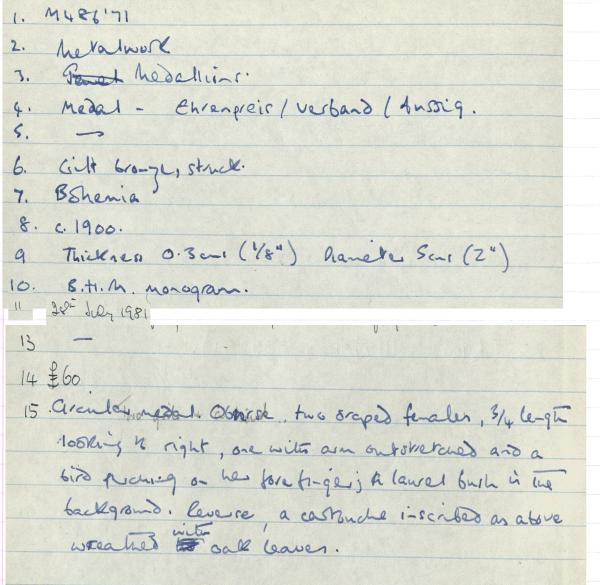 1. M486'71
2. Metalwork
3. Medallions.
4. Medal - Ehrenpreis / Verband / Aussig.
5. —
6. Gilt bronze, struck.
7. Bohemia
8. c. 1900.
9 Thickness 0.3cms (1/8") Diameter 5cms (2")
10. B.H.M. monogram.
11 28th July 1981
13 —
14 £60
15 Circular medal. Obverse, two draped females, 3/4 length
looking to right, one with arm outstretched and a
bird perching on her forefinger; a laurel bush in the
background. Reverse, a cartouche inscribed as above
wreathed with oak leaves.